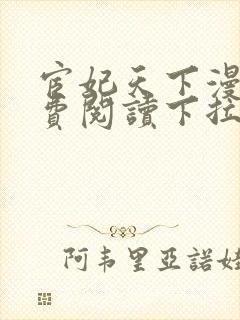 宦妃天下漫
費閱讀下拉
阿韦里亞諾娃